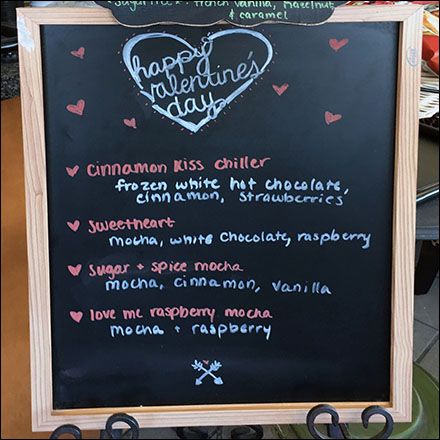 Sugar Free: french vanilla, hazelnut
& caramel
happy
valentine's
day
cinnamon kiss chiller
frozen white hot chocolate,
cinnamon, strawberries
sweetheart
mocha, white chocolate, raspberry
sugar + spice mocha
mocha, cinnamon, vanilla
love me raspberry mocha
mocha + raspberry